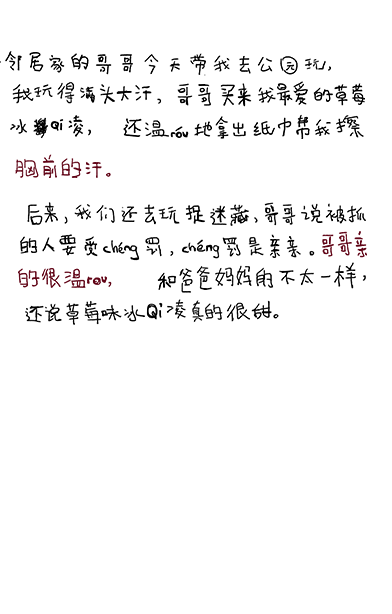 邻居家的哥哥今天带我去公园玩,
我玩得满头大汗,哥哥买来我最爱的草莓
冰Qi凌, 还温róu地拿出纸巾帮我擦
胸前的汗。
后来,我们还去玩捉迷藏,哥哥说被抓
的人要受chéng罚,chéng罚是亲亲。哥哥亲
的很温róu, 和爸爸妈妈的不太一样,
还说草莓味冰Qi凌真的很甜。